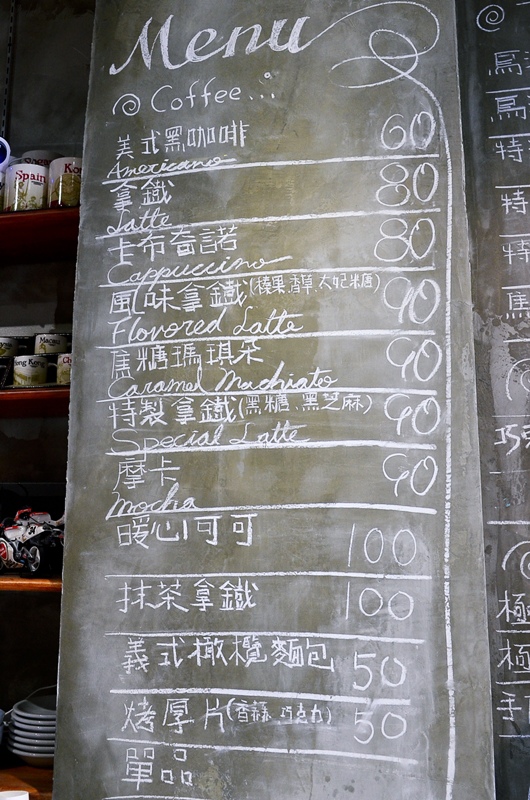 Menu
Coffee...
美式黑咖啡 60
Americano
拿鐵 80
Latte
卡布奇諾 80
Cappuccino
風味拿鐵(榛果.香草.太妃糖) 90
Flavored Latte
焦糖瑪琪朵 90
Caramel Machiato
特製拿鐵(黑糖、黑芝麻) 90
Special Latte
摩卡 90
Mocha
暖心可可 100
抹茶拿鐵 100
義式橄欖麵包 50
烤厚片(香蒜.巧克力) 50
單品
Spain
特
特
特
極
極
手